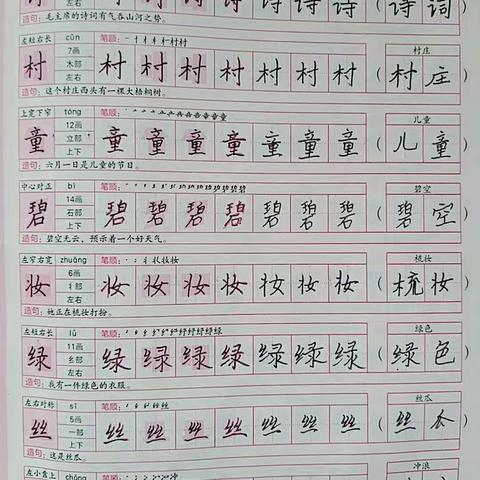 左右 诗 诗 诗 诗 诗 诗 诗 ( 诗 词 )
造句：毛主席的诗词有气吞山河之势。
左短右长 cūn 笔顺： 村庄
村 7画 木部 左右 村 村 村 村 村 村 村 ( 村 庄 )
造句：这个村庄西头有一棵大梧桐树。
上宽下窄 tóng 笔顺： 儿童
童 12画 立部 上下 童 童 童 童 童 童 童 ( 儿 童 )
造句：六月一日是儿童的节日。
中心对正 bì 笔顺： 碧空
碧 14画 石部 上下 碧 碧 碧 碧 碧 碧 碧 ( 碧 空 )
造句：碧空无云，预示着一个好天气。
左窄右宽 zhuāng 笔顺： 梳妆
妆 6画 丬部 左右 妆 妆 妆 妆 妆 妆 妆 ( 梳 妆 )
造句：她正在梳妆打扮。
左短右长 lǜ 笔顺： 绿色
绿 11画 纟部 左右 绿 绿 绿 绿 绿 绿 绿 ( 绿 色 )
造句：我有一件绿色的衣服。
左右对称 sī 笔顺： 丝瓜
丝 5画 一部 上下 丝 丝 丝 丝 丝 丝 丝 ( 丝 瓜 )
造句：这是丝瓜。
左小靠上 chōng 笔顺： 冲浪